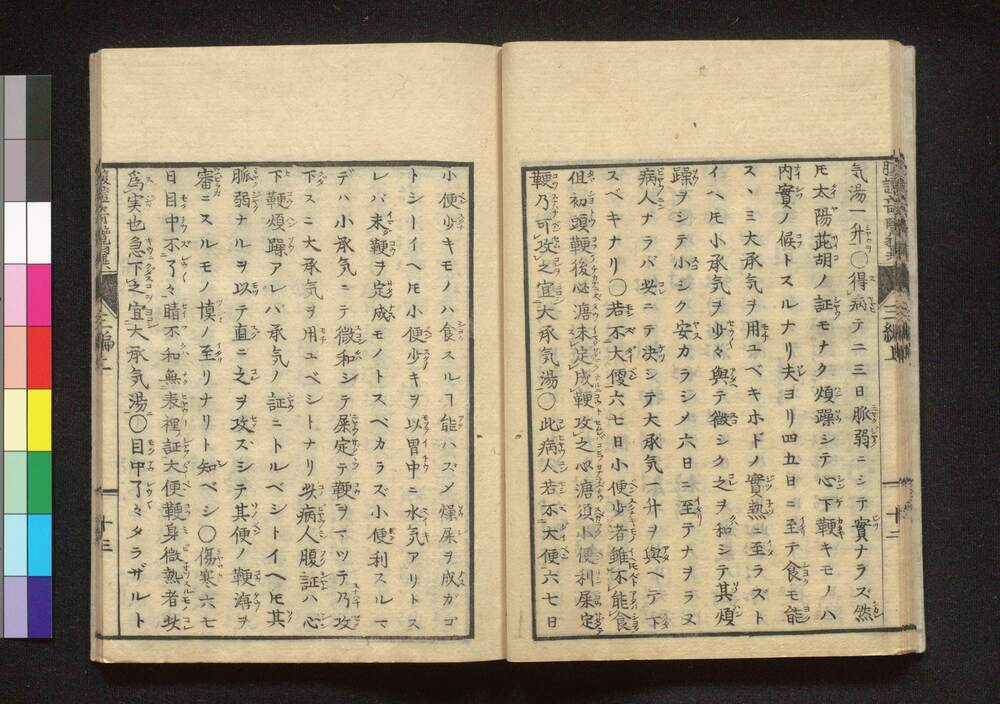 気湯一升〇得病テ二三日脈弱ニシテ實ナラズ然
𪜈太陽茈胡ノ証モナク煩躁シテ心下鞕キモノハ
内實ノ候トスルナリ夫ヨリ四五日ニ至テ食モ能
スヽミ大承気ヲ用ユベキホドノ實熱ニ至ラズト
イヘ𪜈小承気ヲ少々與テ微シク之ヲ和シテ其煩
躁ヲシテ小シク安カラシメ六日ニ至テナヲラヌ
病人ナラバ爰ニテ決シテ大承気一升ヲ與ベテ下
スベキナリ〇若不大便六七日小便少者雖不能食
但初頭鞕後必溏未定成鞕攻之必溏須小便利屎定
鞕乃可攻之宜大承気湯〇此病人若不大便六七日
三編上
十二
小便少キモノハ食スルヿ能ハズメ燥屎ヲ成ガゴ
トシーイヘ𪜈小便少キヲ以胃中ニ水気アリトス
レバ未鞕ヲ定成モノトスベカラズ小便利スルマ
デハ小承気ニテ微和シテ屎定テ鞕ヲマツテ乃攻
下スニ大承気ヲ用ユベシトナリ此病人腹証ハ心
下鞕煩躁アレハ承気ノ証ニトルベシトイヘ𪜈其
脈弱ナルヲ以テ直ニ之ヲ攻ズシテ其便ノ鞕溏ヲ
審ニスルモノ慎ノ至リナリト知ベシ〇傷寒六七
日目中不了々睛不和無表裡証大便鞕身微熱者此
為実也急下之宜大承気湯〇目中了々タラザルト
三編上
十三